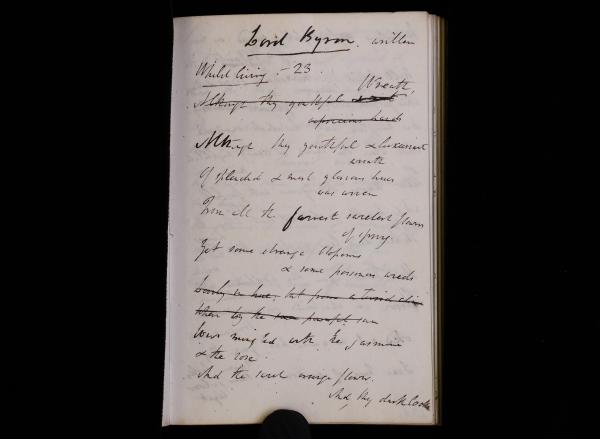 Lord Byron. written
Whilst living. – 23.
Wreath,
Although thy youthful
Although thy youthful & luxuriant
wreath
Of splendid & most glorious hues
was woven
From all the fairest rarest flowers
of spring.
Yet some strange blossoms
& some poisonous weeds
Lovely in hue, but from a
Where by the
Were mingled with the jasmine
& the rose
And the sweet orange flower.
And thy dark locks